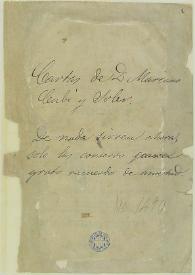 Cartas de D Mariano
Cubí y Soler.
De nada sirven ahora,
solo las conservo para
grato recuerdo de amistad